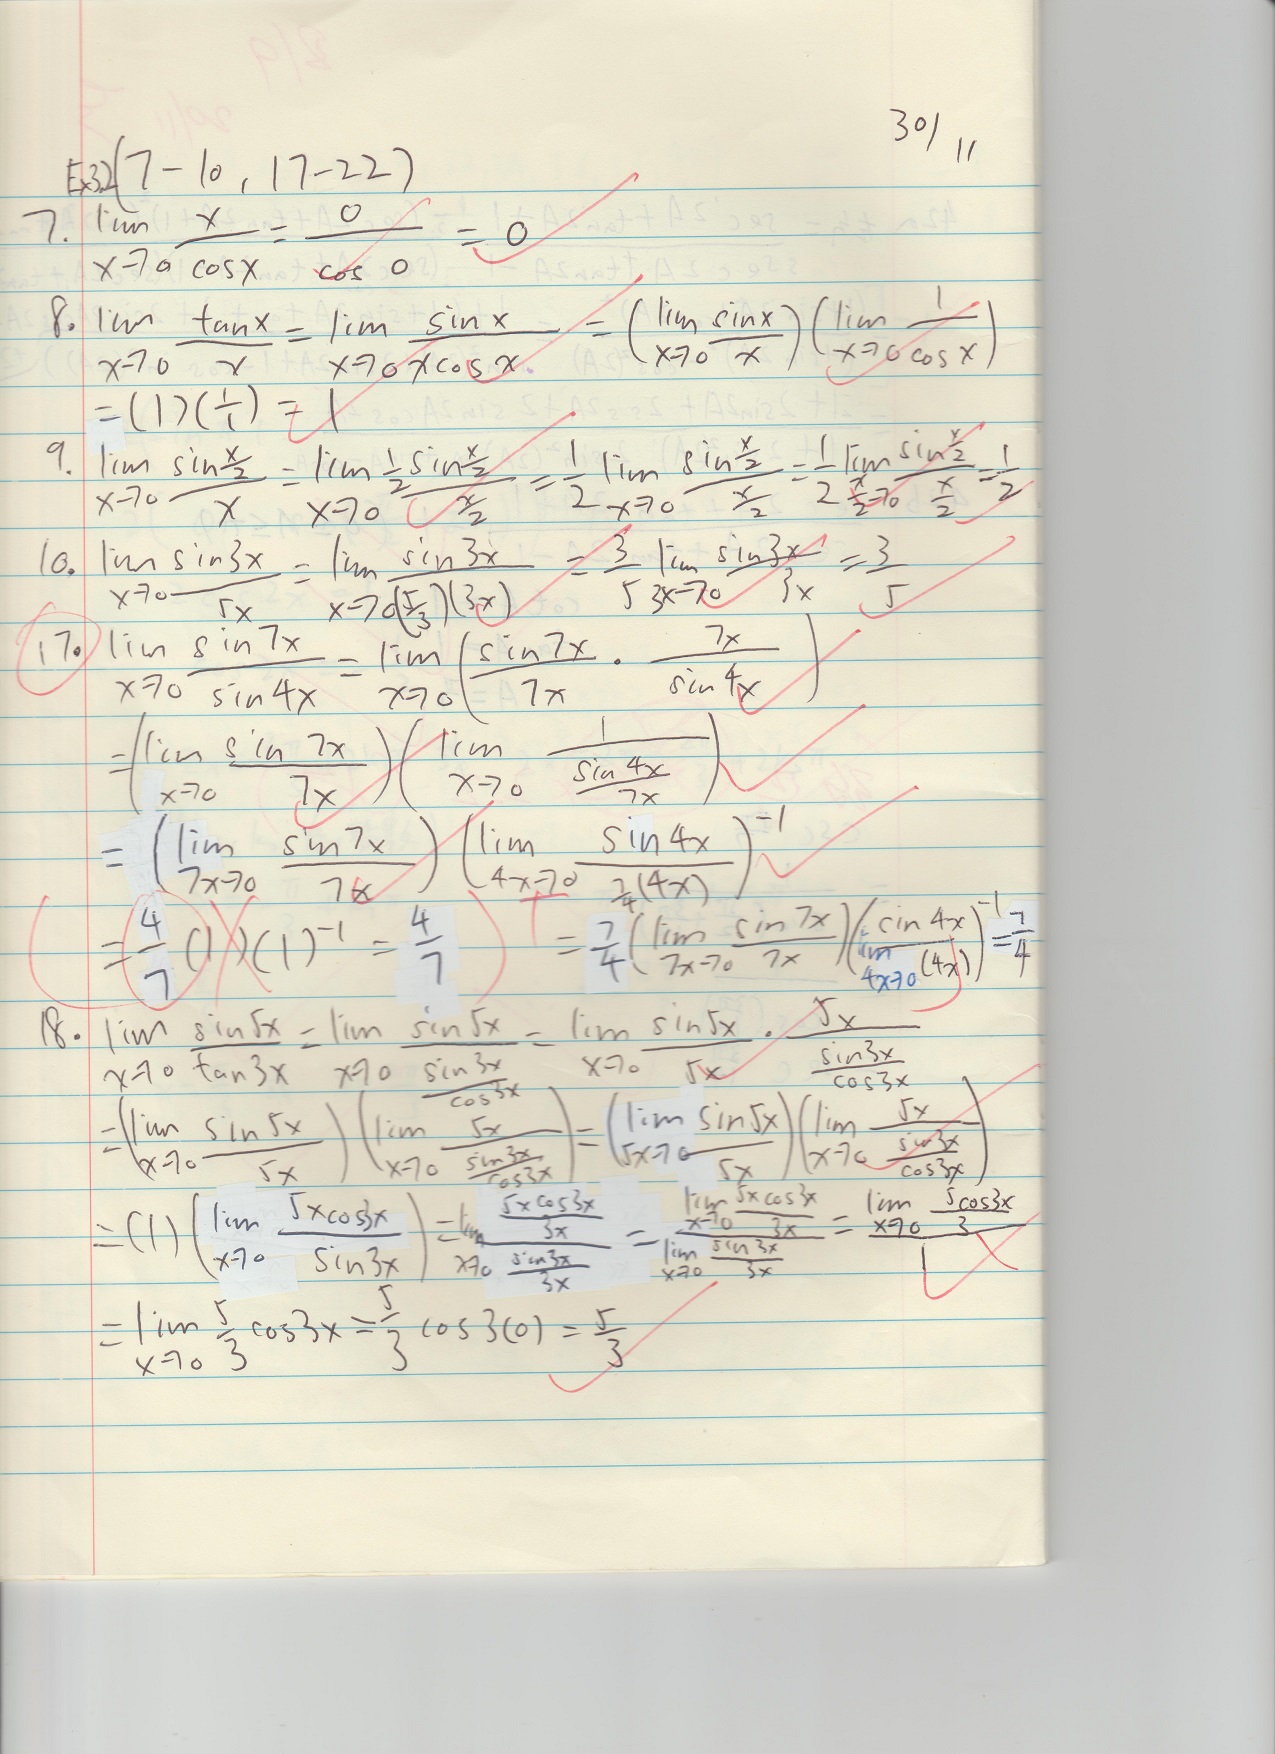 30/11
Ex3.2(7-10, 17-22)
7. lim x→0 x/cosx = 0/cos 0 = 0
8. lim x→0 tanx/x = lim x→0 sinx/xcosx. = (lim x→0 sinx/x)(lim x→0 1/cosx)
= (1)(1/1) = 1
9. lim x→0 sin x/2 / x = lim x→0 1/2 sin x/2 / x/2 = 1/2 lim x→0 sin x/2 / x/2 = 1/2 lim x/2→0 sin x/2 / x/2 = 1/2
10. lim x→0 sin3x/5x = lim x→0 sin3x/(5/3)(3x) = 3/5 lim 3x→0 sin3x/3x = 3/5
17. lim x→0 sin7x/sin4x = lim x→0 (sin7x/7x · 7x/sin4x)
= (lim x→0 sin 7x/7x)(lim x→0 1/(sin4x/7x))
= (lim 7x→0 sin7x/7x)(lim 4x→0 sin4x/(7/4(4x)))⁻¹
= 4/7 (1)(1)⁻¹ = 4/7 = 7/4 (lim 7x→0 sin7x/7x)(lim 4x→0 sin4x/(4x))⁻¹ = 7/4
18. lim x→0 sin5x/tan3x = lim x→0 sin5x/(sin3x/cos3x) = lim x→0 sin5x/5x · 5x/(sin3x/cos3x)
= (lim x→0 sin5x/5x)(lim x→0 5x/(sin3x/cos3x)) = (lim 5x→0 sin5x/5x)(lim x→0 5x/(sin3x/cos3x))
= (1)(lim x→0 5xcos3x/sin3x) = lim x→0 (5xcos3x/3x)/(sin3x/3x) = (lim x→0 5xcos3x/3x)/(lim x→0 sin3x/3x) = (lim x→0 5cos3x/3)/1
= lim x→0 5/3 cos3x = 5/3 cos3(0) = 5/3